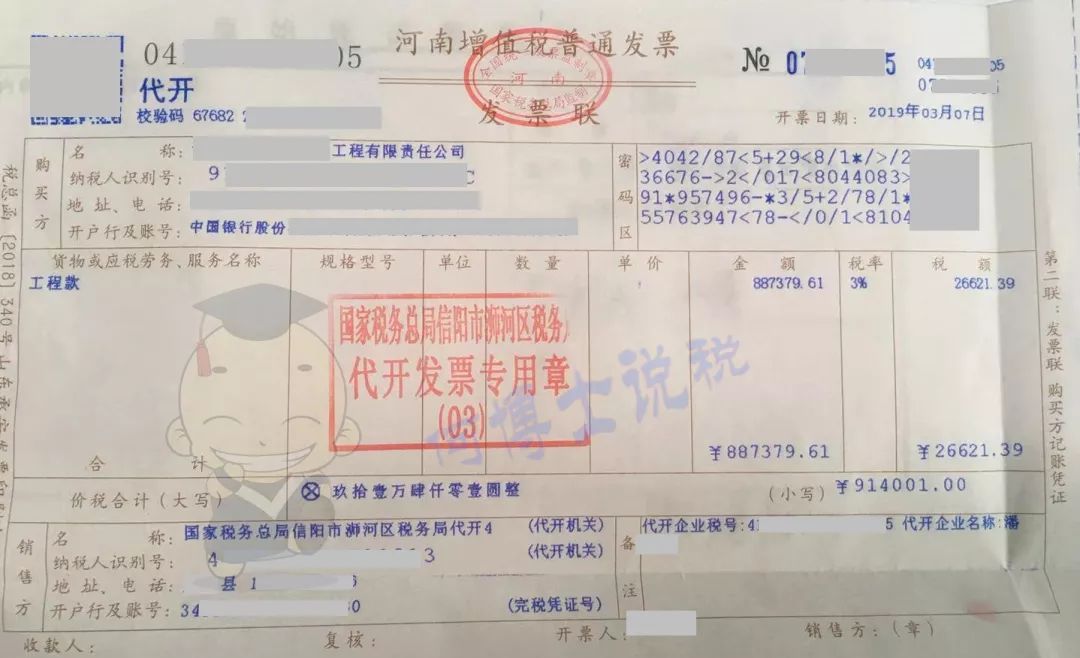 河南增值税普通发票
04 05
代开
校验码 67682 2
全国统一发票监制章
河南
国家税务总局监制
发票联
№ 07 5
04 05
07
开票日期: 2019年03月07日
购买方
名 称: 工程有限责任公司
纳税人识别号: 9 C
地 址、电 话:
开户行及账号: 中国银行股份
密码区
>4042/87<5+29<8/1*/>/2
36676->2</017<8044083>
91*957496-*3/5+2/78/1*
55763947<78-</0/1<8104
货物或应税劳务、服务名称 规格型号 单位 数量 单价 金额 税率 税额
工程款 887379.61 3% 26621.39
国家税务总局信阳市浉河区税务
代开发票专用章
(03)
阿博士说税
合 计 ¥887379.61 ¥26621.39
价税合计(大写) ⊗ 玖拾壹万肆仟零壹圆整 (小写) ¥914001.00
销售方
名 称: 国家税务总局信阳市浉河区税务局代开4 (代开机关)
纳税人识别号: 4 3 (代开机关)
地 址、电 话: 县 1 6
开户行及账号: 34 30 (完税凭证号)
备注
代开企业税号:4 5 代开企业名称:潘
收款人: 复核: 开票人: 销售方:(章)
税总函[2018]340号
第二联:发票联 购买方记账凭证